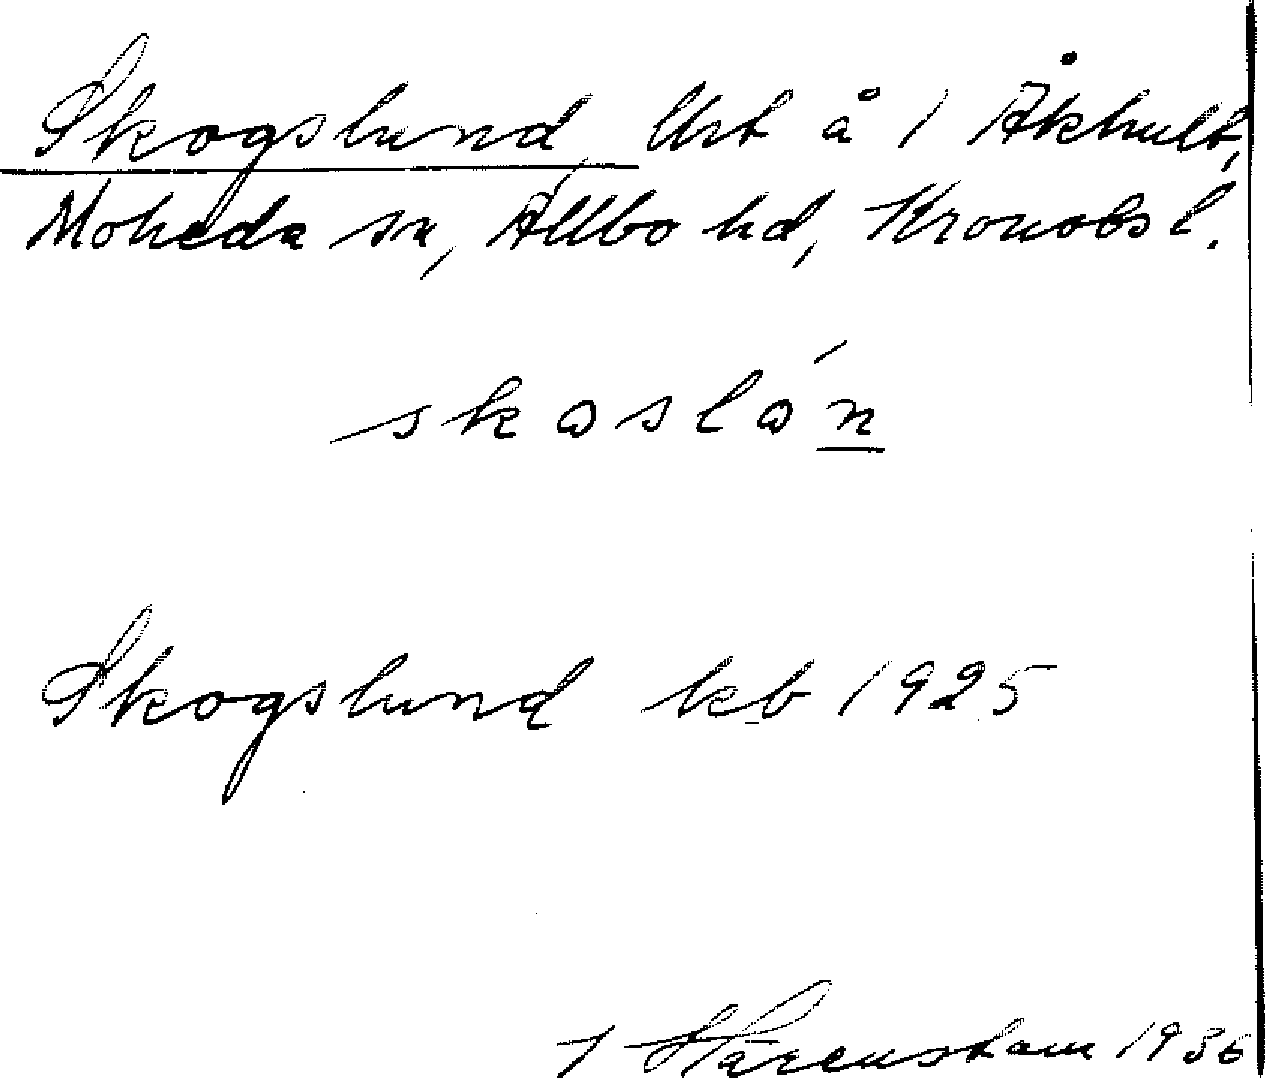 Skogslund Urt å 1 Åkhult,
Moheda sn, Allbo hd, Kronobs l.
skoslón
Skogslund kb 1925
1936